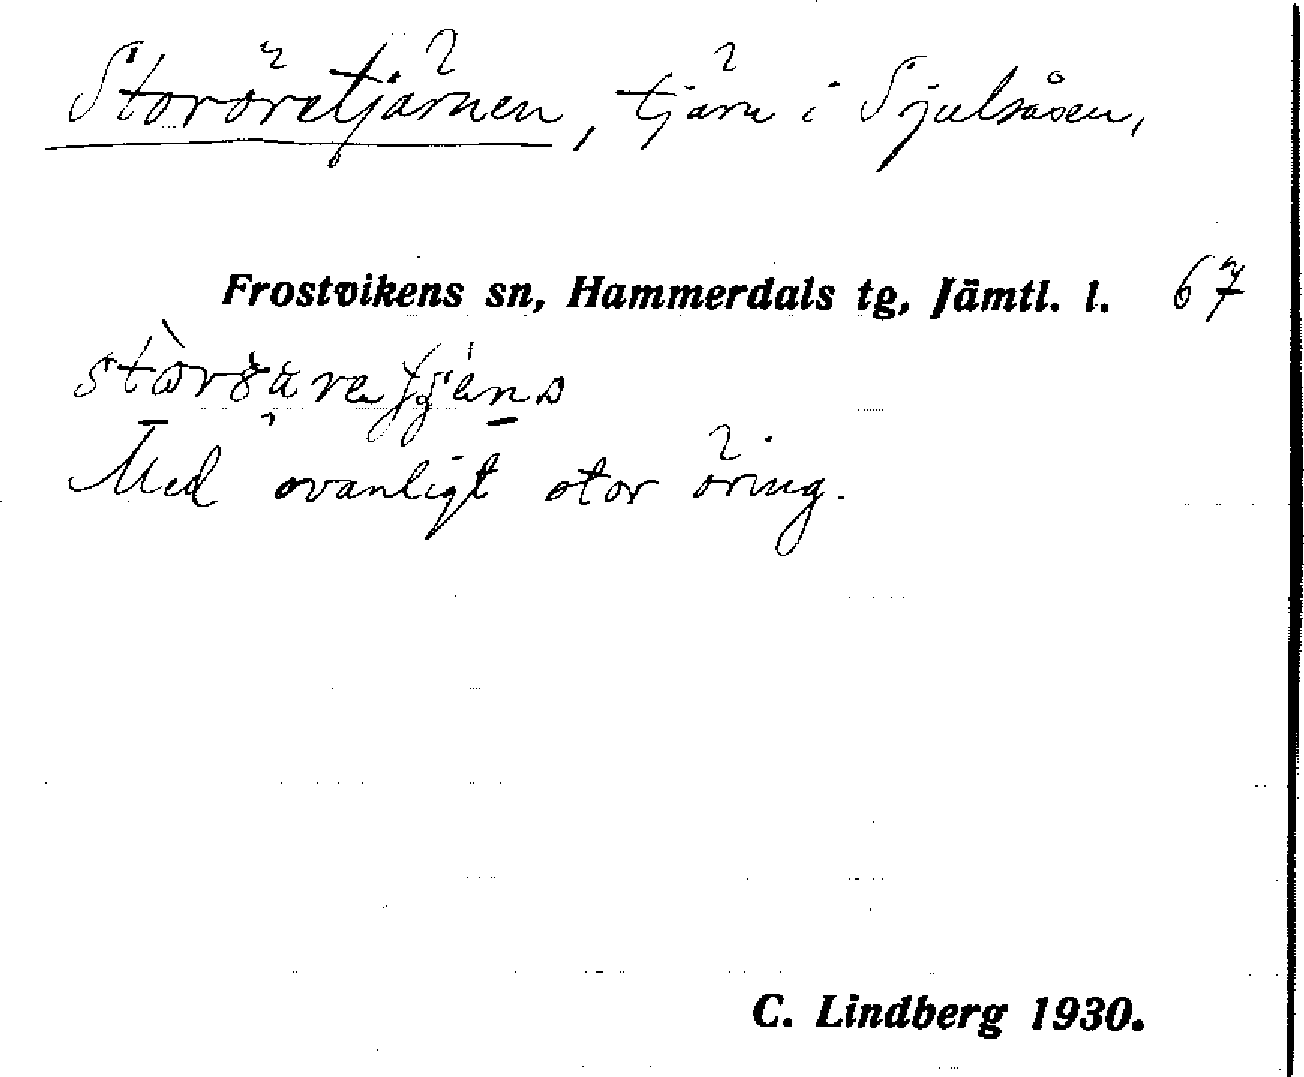 Storöretjärnen, tjärn i Sjulsåsen,
Frostvikens sn, Hammerdals tg, Jämtl. l. 67
Med ovanligt stor öring.
C. Lindberg 1930.